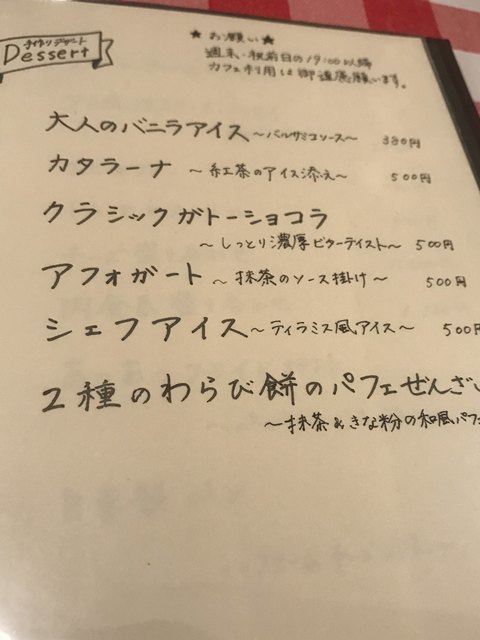 手作りデザート
Dessert
★お願い★
週末・祝前日の19:00以降
カフェ利用は御遠慮願います。
大人のバニラアイス ～バルサミコソース～ 380円
カタラーナ ～紅茶のアイス添え～ 500円
クラシックガトーショコラ
～しっとり濃厚ビターテイスト～ 500円
アフォガート ～抹茶のソース掛け～ 500円
シェフアイス ～ティラミス風アイス～ 500円
2種のわらび餅のパフェぜんざい
～抹茶&きな粉の和風パフェ